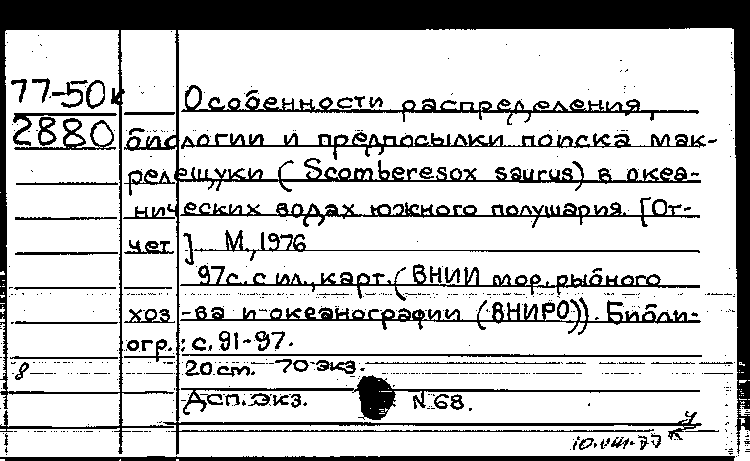 77-50к Особенности распределения,
2880 биологии и предпосылки поиска мак-
релещуки (Scomberesox saurus) в океа-
нических водах южного полушария. [От-
чет] М., 1976
97с. с ил., карт. (ВНИИ мор. рыбного
хоз-ва и океанографии (ВНИРО)). Библи-
огр.: с. 91-97.
8 20 ст. 70 экз.
Дсп. экз. N 68.
10.VIII.77